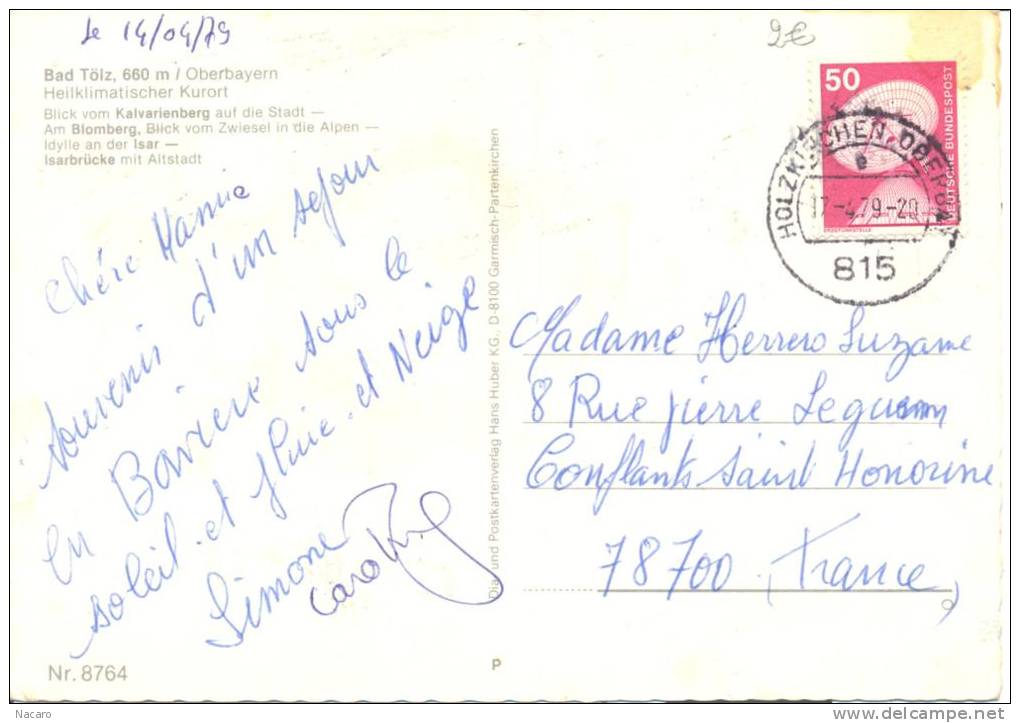 le 14/04/79
2€
Bad Tölz, 660 m / Oberbayern
Heilklimatischer Kurort
Blick vom Kalvarienberg auf die Stadt —
Am Blomberg, Blick vom Zwiesel in die Alpen —
Idylle an der Isar —
Isarbrücke mit Altstadt
chére Mamie
souvenir d'un sejour
en Baviere sous le
soleil et pluie et Neige
Simone
Nr. 8764
Dia- und Postkartenverlag Hans Huber KG., D-8100 Garmisch-Partenkirchen
P
50
DEUTSCHE BUNDESPOST
ERDEFUNKSTELLE
HOLZKIRCHEN, OBERBAY
e
17-4.79-20
815
Madame Herrero Suzane
8 Rue pierre
Conflants Saint Honorine
78700 (France)
Nacaro
http://www.delcampe.net